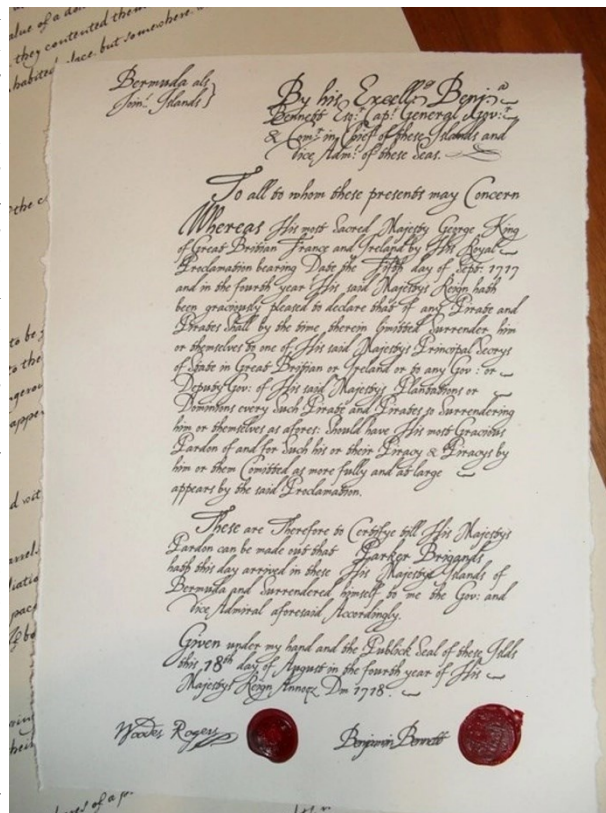 alue of a dom
they contented them
habited place, but somewhere
Bermuda als
Som: Islands}
By his Excell:ᵃ Benj:ᵃ
Bennett Esq: Cap: General Gov:ʳ
& Com:ʳ in Chief of these Islands and
Vice Adm: of these Seas.
To all to whom these presents may Concern
Whereas His most Sacred Majesty George, King
of Great Britian France and Ireland by His Royal
Proclamation bearing Date the Fifth day of Sept: 1717
and in the fourth year His said Majestys Reign hath
been graciously pleased to declare that if any Pirate and
Pirates Shall by the time therein limitted Surrender him
or themselves to one of His said Majestys Principal Secrys
of State in Great Britian or Ireland or to any Gov: or
Deputy Gov: of His said Majestys Plantations or
Dominions every Such Pirate and Pirates so Surrendering
him or themselves as afores: Should have His most Gracious
Pardon of and for Such his or their Piracy & Piracys by
him or them Comitted as more fully and at large
appears by the said Proclamation.
These are Therefore to Certifye till His Majestys
Pardon can be made out that Parker Brigands
hath this day arrived in these His Majestys Islands of
Bermuda and Surrendered himself to me the Gov: and
Vice Admiral aforesaid Accordingly.
Given under my hand and the Publick Seal of these Islds
this 18th day of August in the fourth year of His
Majestys Reign Annoq Dm 1718.
Woodes Rogers
Benjamin Bennett